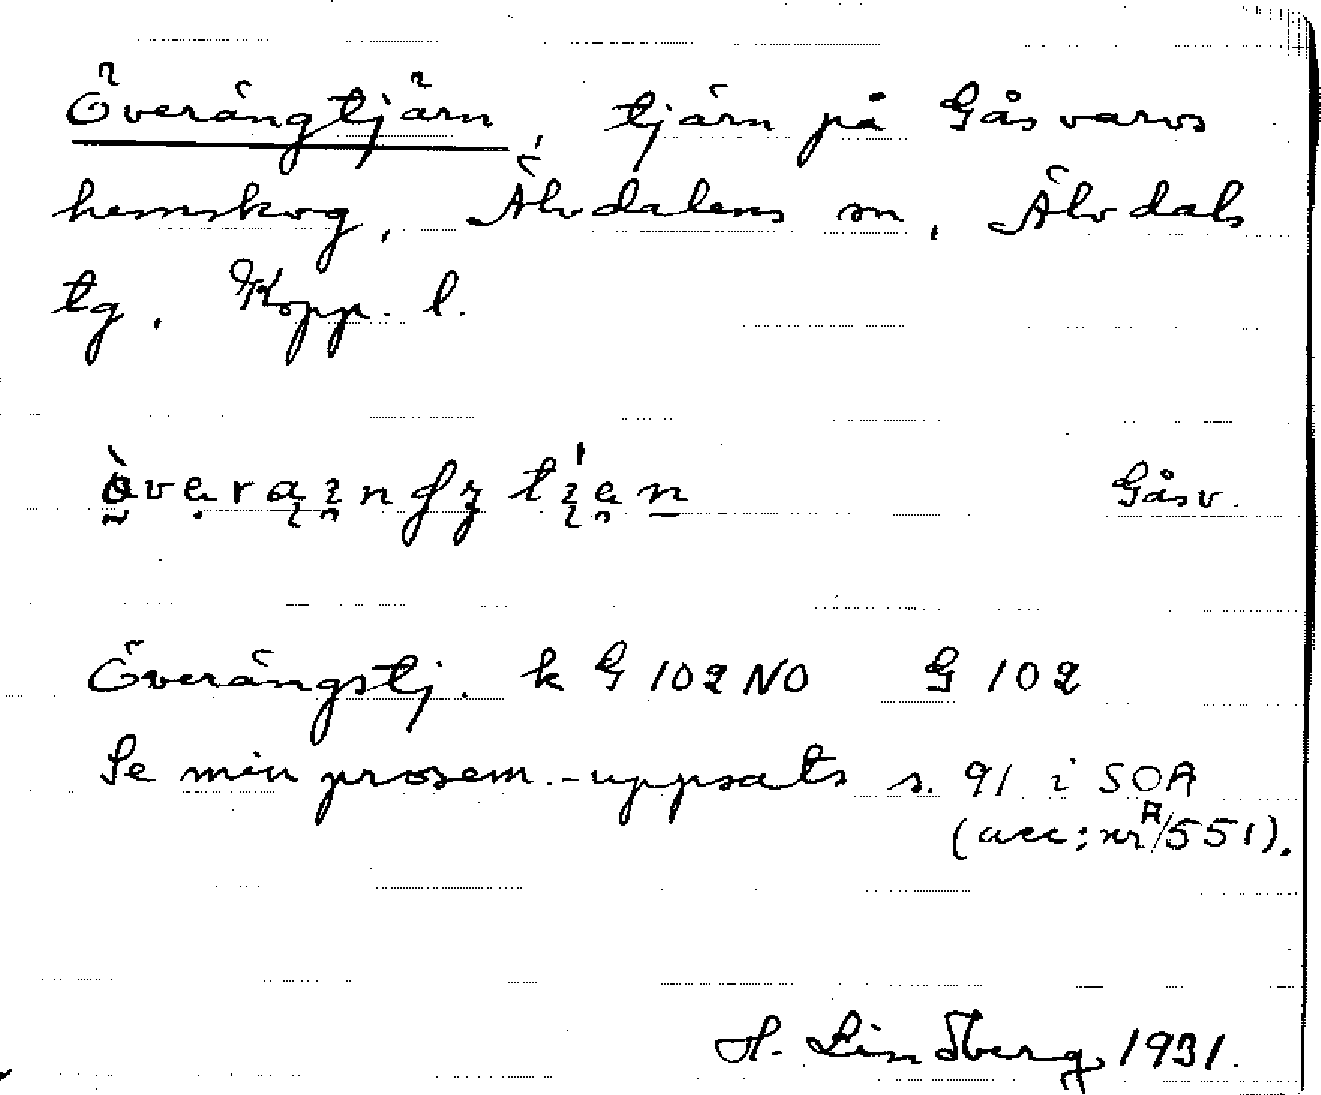 Överängtjärn, tjärn på Gåsvarvs
hemskog, Älvdalens sn, Älvdals
tg. Kopp. l.
Gåsv.
Överängstj. k G 102 NO G 102
Se min prosem.-uppsats s. 91 i SOA
(acc: nr A/551).
H. Lindberg 1931.